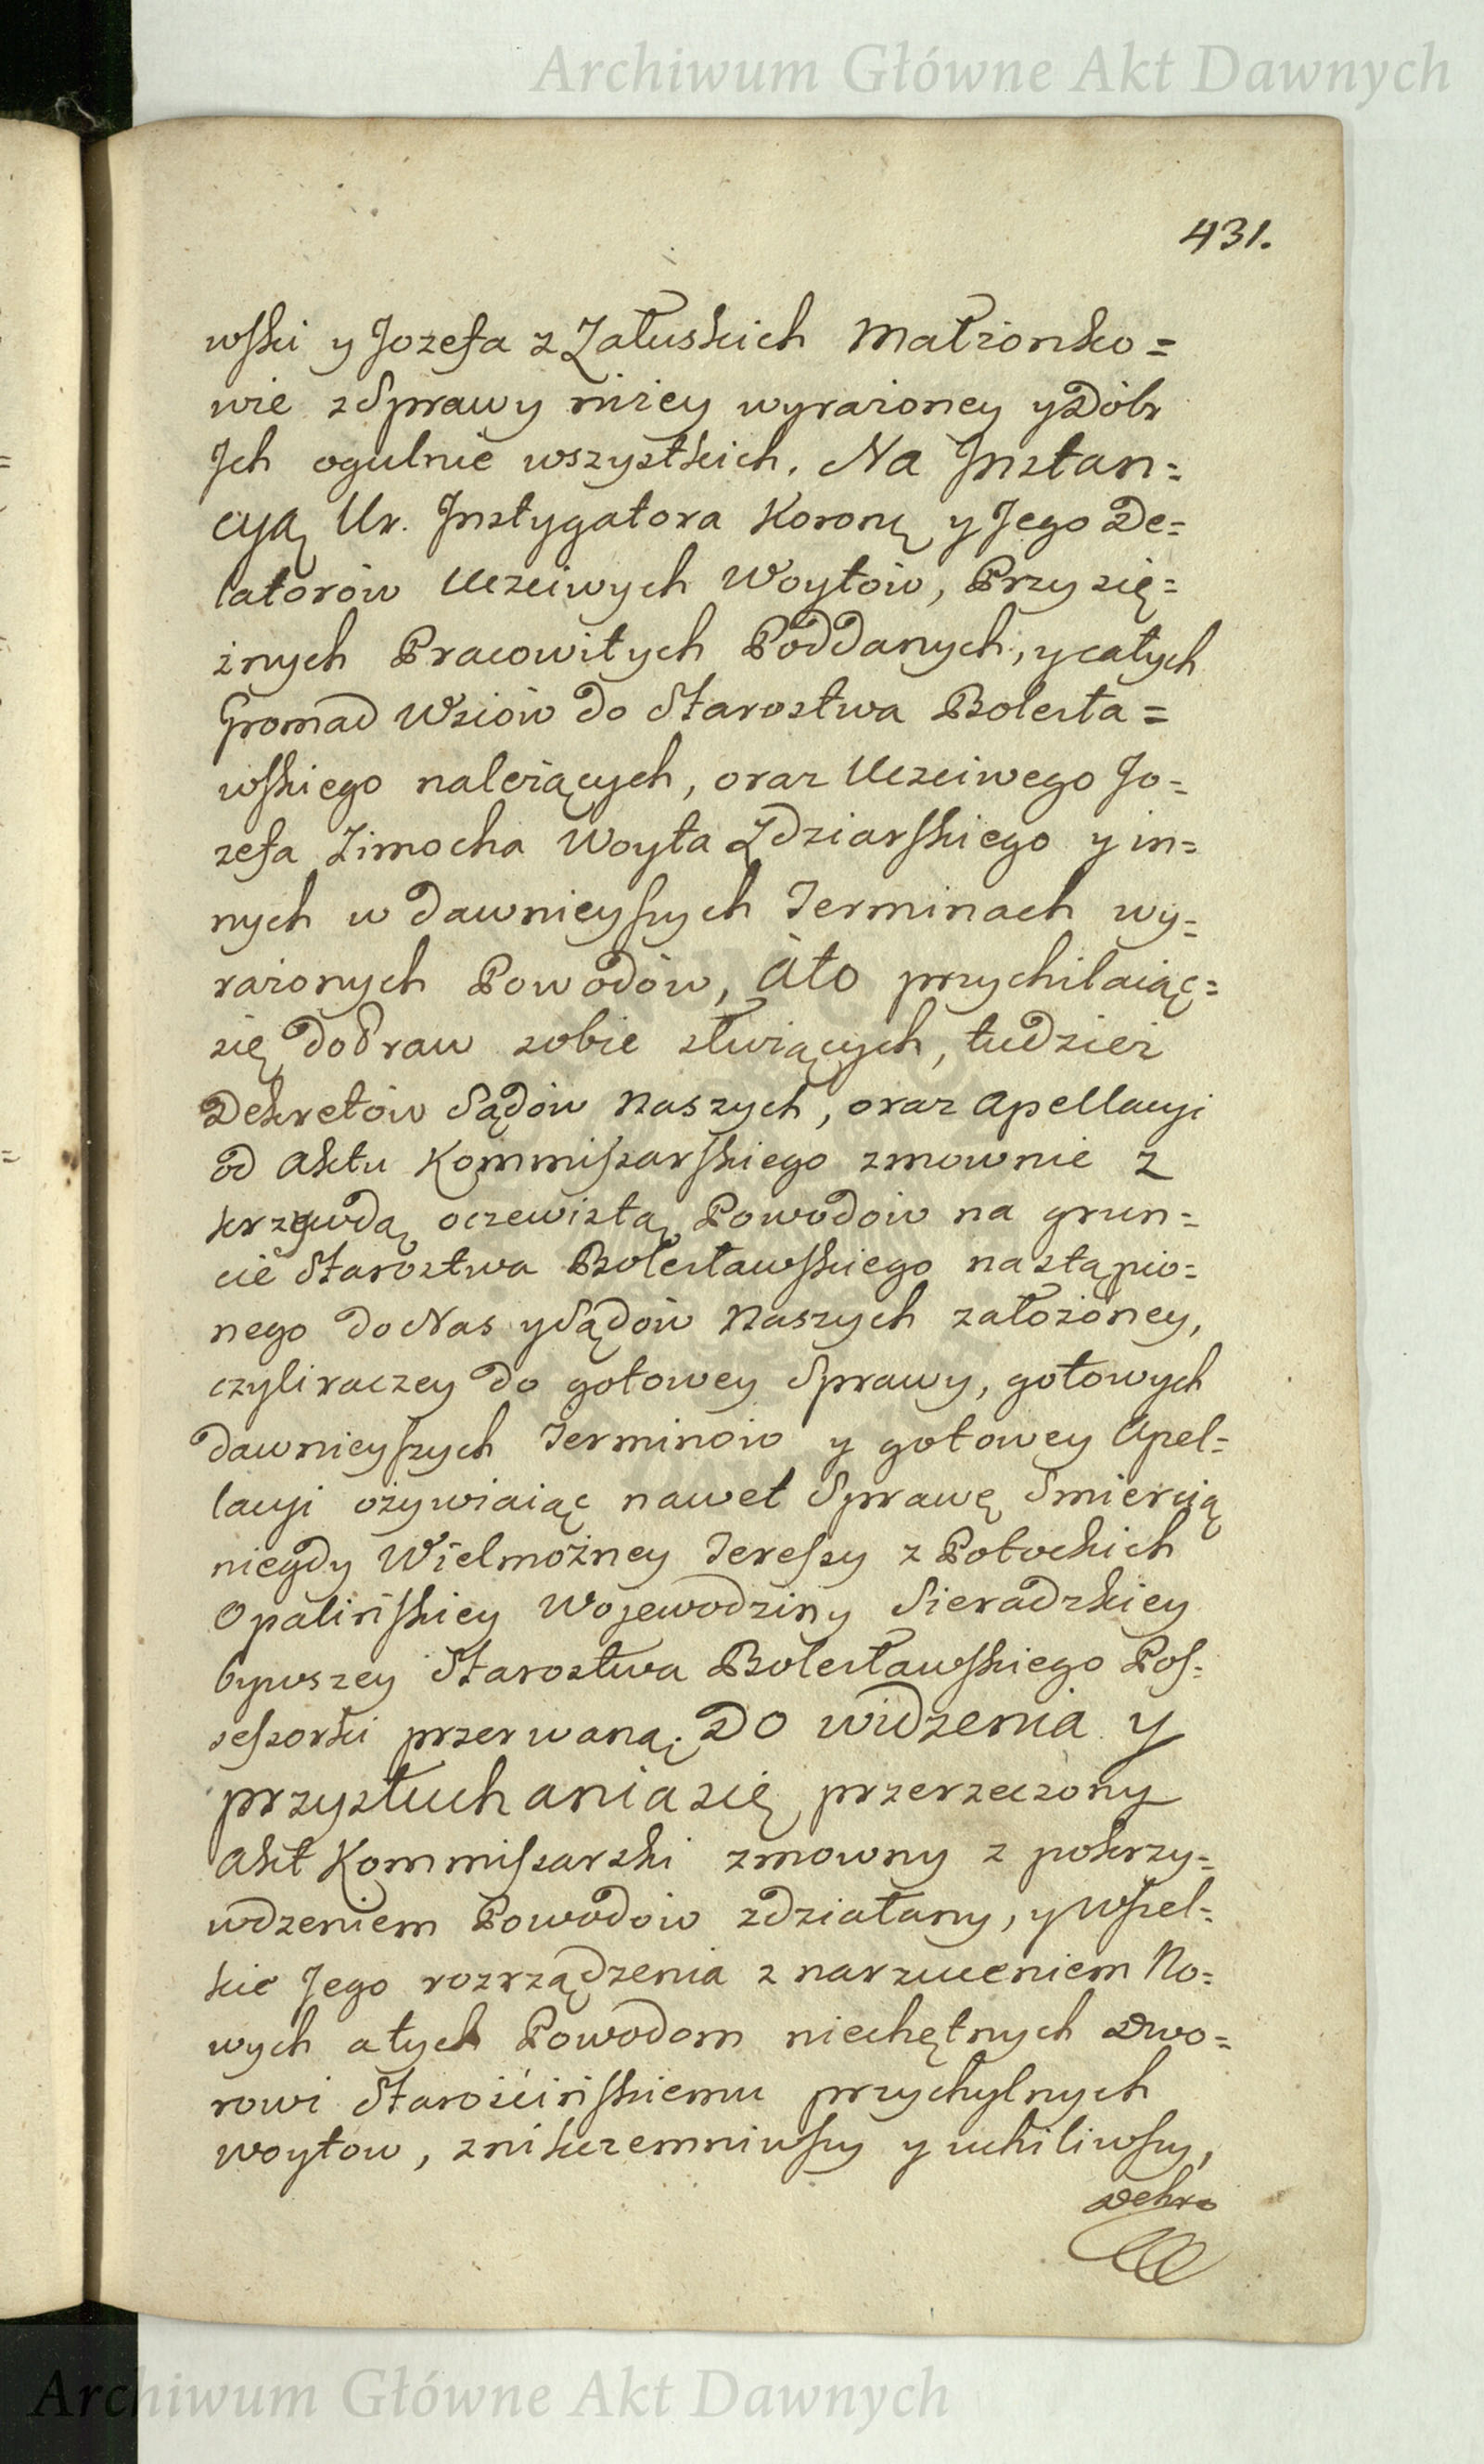 Archiwum Główne Akt Dawnych
431.
wski y Jozefa z Załuskich Małżonko=
wie z Sprawy niżey wyrażoney y Dóbr
Jch ogulnie wszystkich. Na Jnstan=
cyą Ur. Jnstygatora Korony y Jego De=
latorów Uczciwych Woytów, Przysię=
żnych Pracowitych Poddanych, y całych
Gromad Wsiów do Starostwa Bolesła=
wskiego należących, oraz Uczciwego Jo=
zefa Zimocha Woyta Zdziarskiego y in=
nych w dawnieyszych Terminach wy=
rażonych Powodów, Ato przychilaiąc=
się do Praw sobie służących, tudzież
Dekretów Sądów Naszych, oraz Apellacyi
od Aktu Kommissarskiego zmownie z
krzywdą oczewistą Powodow na grun=
cie Starostwa Bolesławskiego nastąpio=
nego do Nas y Sądów Naszych założoney,
czyli raczey do gotowey Sprawy, gotowych
dawnieyszych Terminow y gotowey Apel=
lacyi ożywiaiąc nawet Sprawę Smiercią
niegdy Wielmożney Teressy z Potockich
Opalińskiey Wojewodziny Sieradzkiey
bywszey Starostwa Bolesławskiego Pos=
sessorki przerwaną. Do widzenia y
przysłuchania się przerzeczony
Akt Kommissarski zmowny z pokrzy=
wdzeniem Powodow zdziałany, y wszel=
kie Jego rozrządzenia z narzuceniem No=
wych a tych Powodom niechętnych Dwo=
rowi Starościńskiemu przychylnych
Woytow, znikczemniwszy y uchiliwszy,
Dekre
Archiwum Główne Akt Dawnych